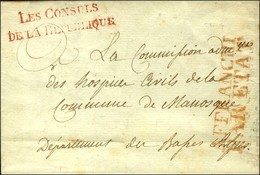 LES CONSULS
DE LA RÉPUBLIQUE
A La Commission adve
des hospices Civils de la
Commune de Manosque
Département des Basses Alpes
FRANCHI